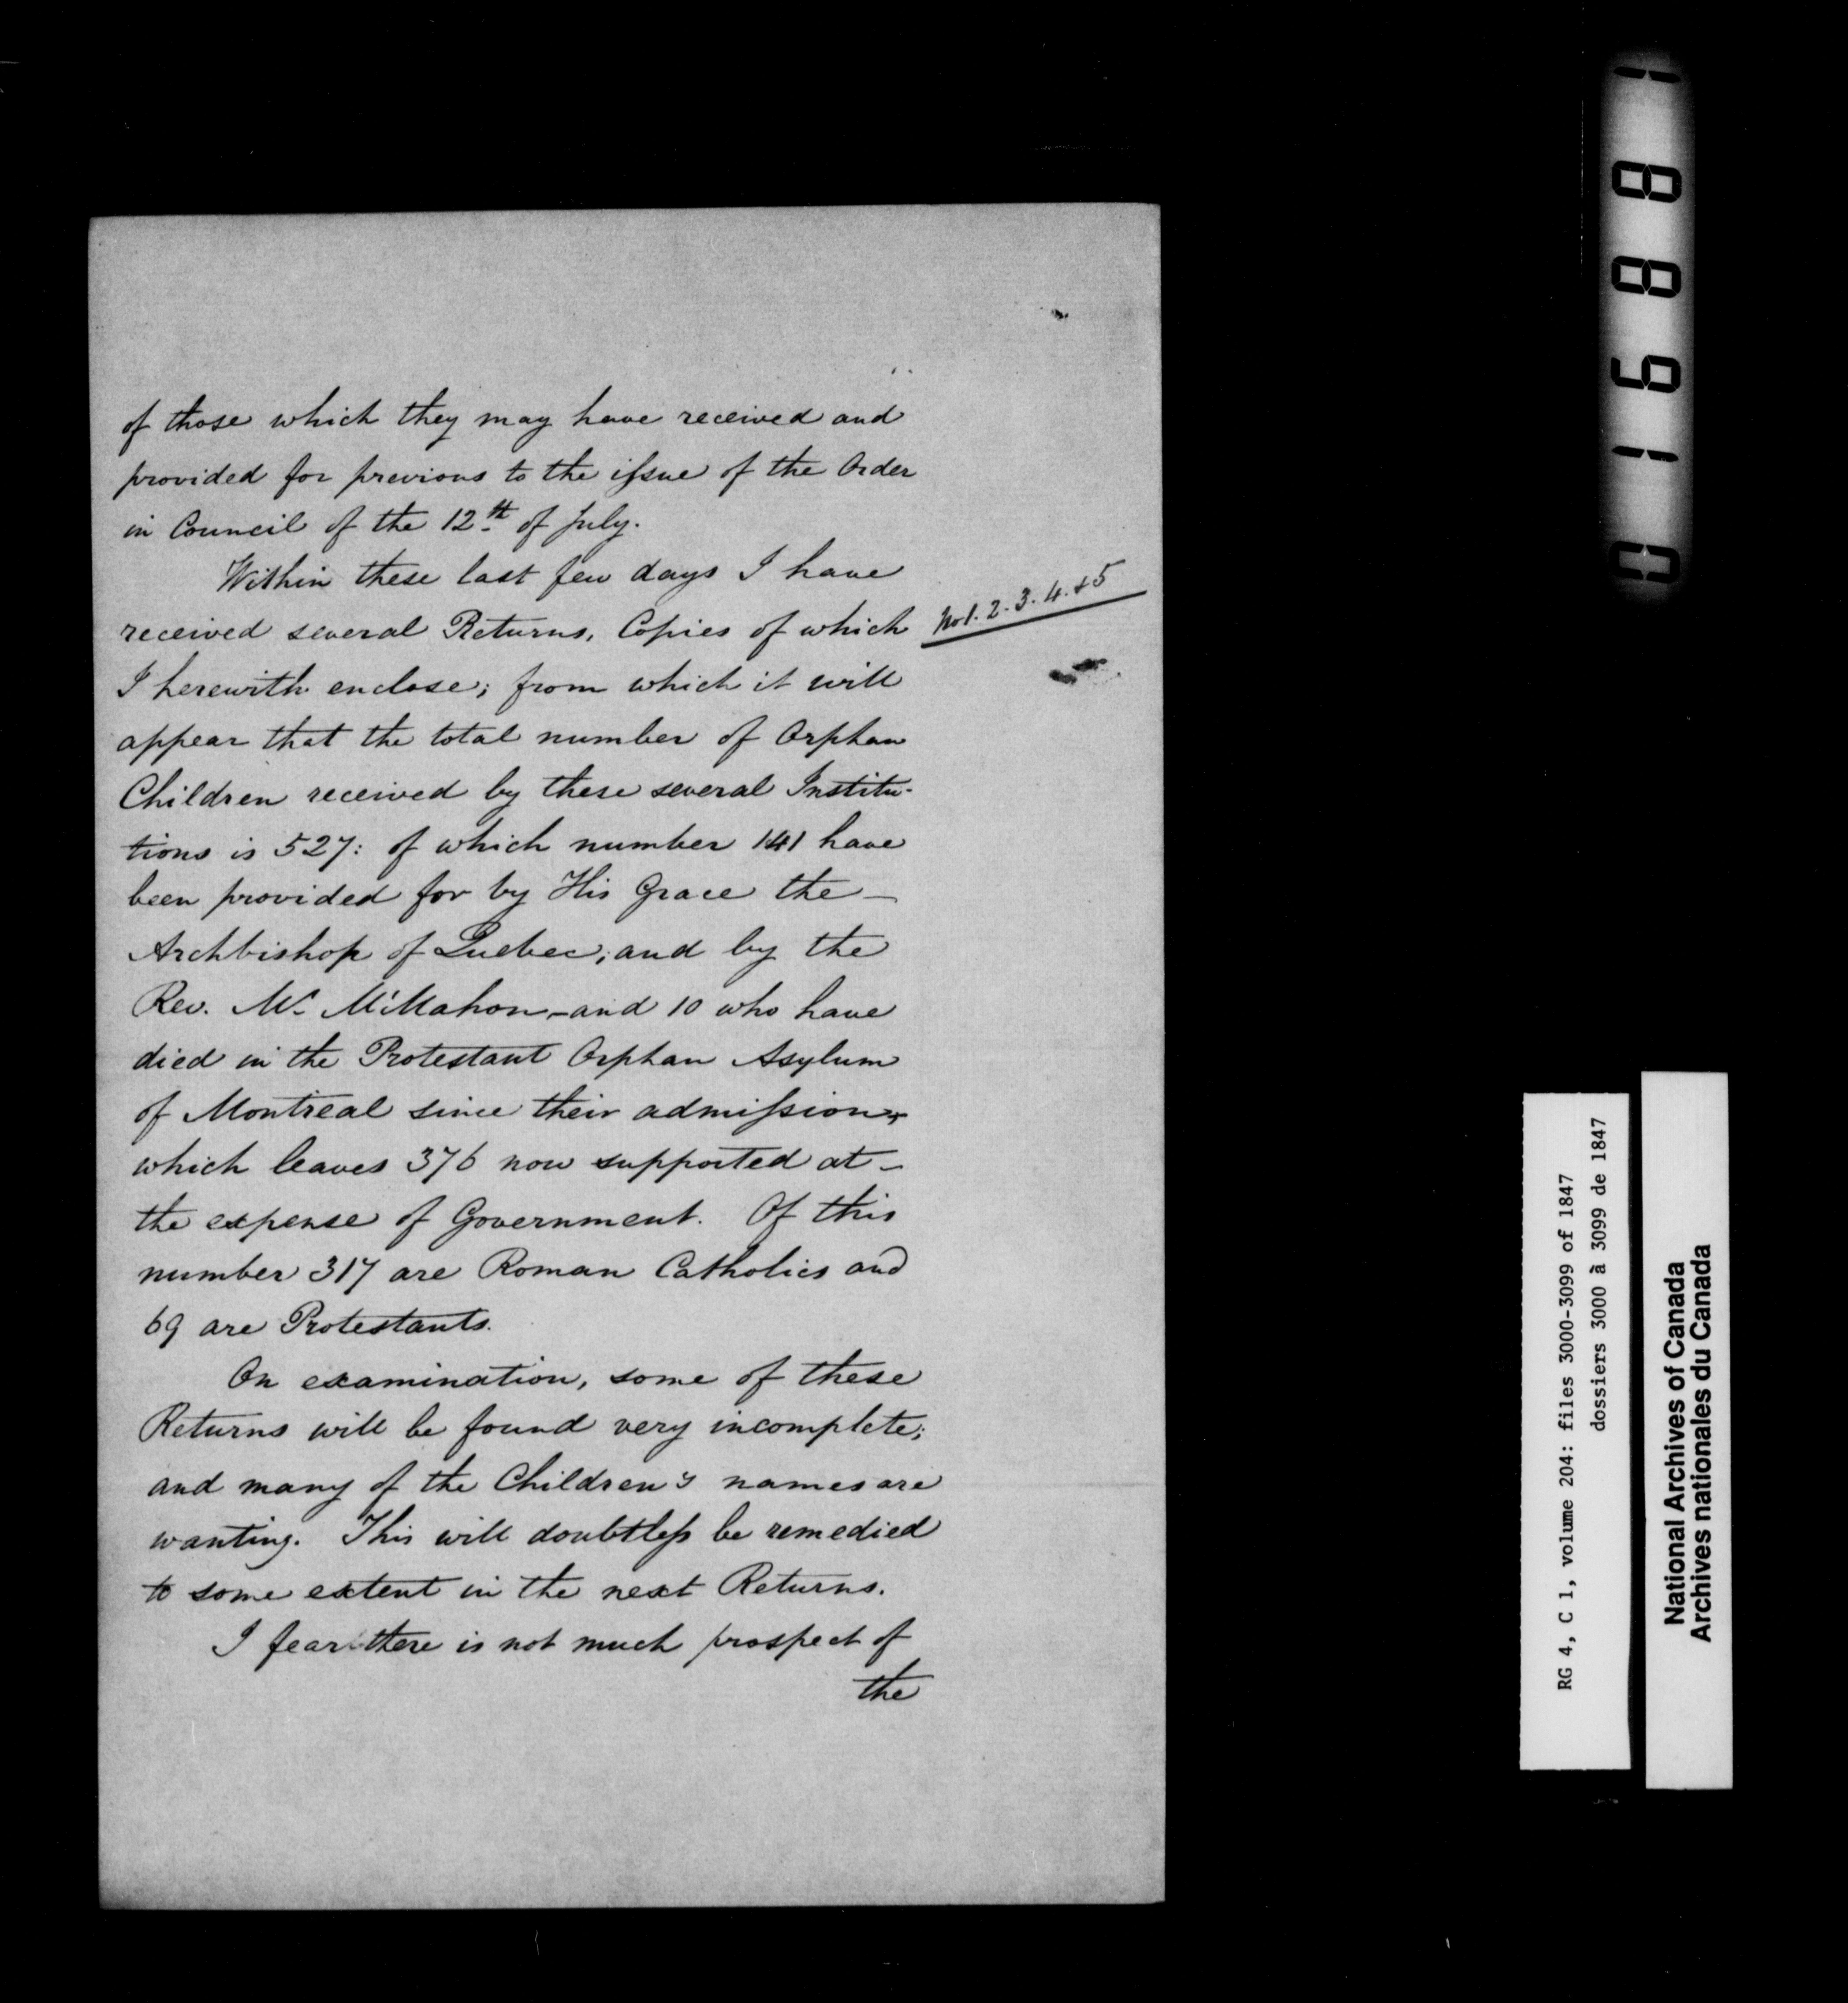 of those which they may have received and
provided for previous to the issue of the Order
in Council of the 12th of July.
Within these last few days I have
received several Returns, Copies of which
No 1. 2. 3. 4. & 5
I herewith enclose; from which it will
appear that the total number of Orphan
Children received by these several Institu-
tions is 527: of which number 141 have
been provided for by His Grace the -
Archbishop of Quebec; and by the
Rev. Mr. McMahon - and 10 who have
died in the Protestant Orphan Asylum
of Montreal since their admission,
which leaves 376 now supported at -
the expense of Government. Of this
number 317 are Roman Catholics and
69 are Protestants.
On examination, some of these
Returns will be found very incomplete;
and many of the Children's names are
wanting. This will doubtless be remedied
to some extent in the next Returns.
I fear there is not much prospect of
the
016881
RG 4, C 1, volume 204: files 3000-3099 of 1847
dossiers 3000 à 3099 de 1847
National Archives of Canada
Archives nationales du Canada